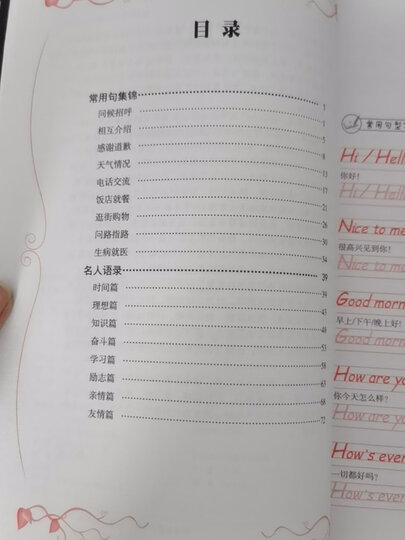 目录
常用句集锦 1
问候招呼 1
相互介绍 5
感谢道歉 8
天气情况 13
电话交流 17
饭店就餐 21
逛街购物 26
问路指路 30
生病就医 34
名人语录 39
时间篇 39
理想篇 43
知识篇 48
奋斗篇 53
学习篇 58
励志篇 63
亲情篇 68
友情篇 72
常用句型
Hi / Hell
你好！
Hi / Hell
Nice to me
很高兴见到你！
Nice to me
Good morn
早上/下午/晚上好！
Good morn
How are yo
你今天怎么样？
How are yo
How's ever
一切都好吗？
How's ever